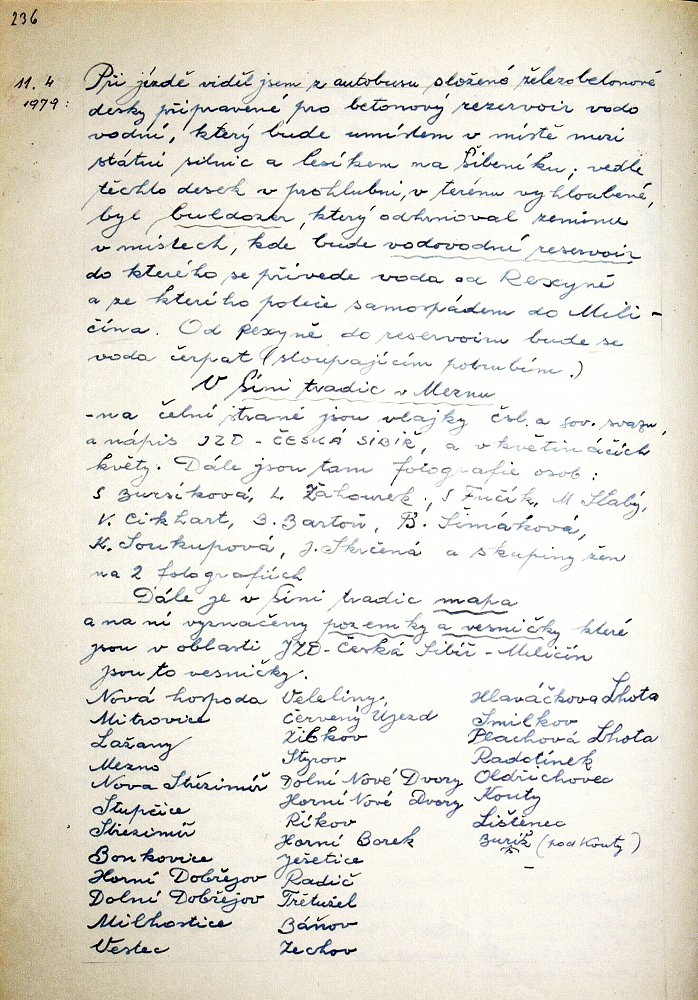 236
11. 4 Při jízdě viděl jsem z autobusu složené železobetonové
1979: desky připravené pro betonový rezervoir vodo
vodní, který bude umístem v místě mezi
státní silnic a lesíkem na Šibeníku; vedle
těchto desek v prohlubni, v terénu vyhloubené,
byl buldozer, který odhrnoval zeminu
v místech, kde bude vodovodní reservoir
do kterého se přivede voda od Rexyně
a ze kterého poteče samospádem do Mili-
čína. Od Rexyně do reservoiru bude se
voda čerpat (stoupajícím potrubím.)
V Síni tradic v Meznu
-na čelní straně jsou vlajky čsl. a sov. svazu,
a nápis JZD - ČESKÁ SIBIŘ, a v květináčích
květy. Dále jsou tam fotografie osob:
S Bursíková, L. Žahourek, S Fučík, M Slabý,
V. Cikhart, B. Bartoň, B. Šimáková,
K. Soukupová, J. Skrčená a skupiny žen
na 2 fotografiích
Dále je v síni tradic mapa
a na ní vyznačeny pozemky a vesničky které
jsou v oblasti JZD-Česká Sibiř - Miličín
jsou to vesničky.
Nová hospoda Veletiny. Hlaváčkova Lhota
Mitrovice Červený Újezd Smilkov
Lažany Žibkov Plachová Lhota
Mezno Styrov Radotínek
Nova Střezimíř Dolní Nové Dvory Oldřichovec
Stupčice Horní Nové Dvory Kouty
Střezimíř Říkov Lištěnec
Bonkovice Horní Borek Buriž (pod Kouty)
Horní Dobřejov Ješetice
Dolní Dobřejov Radíč
Milhostice Třetužel
Vestec Báňov
Zechov